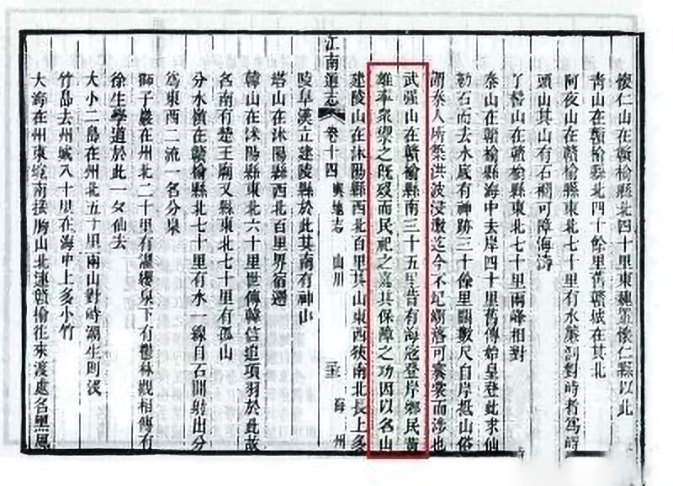 懷仁山在贛榆縣北四十里東魏置懷仁縣以此
青山在贛榆縣北四十餘里舊贛城在其北
阿夜山在贛榆縣東北七十里有水簾洞對峙者為
頭山其山有石欄可障海濤
了髻山在贛榆縣東北七十里兩峰相對
秦山在贛榆縣海中去岸四十里舊傳始皇登此求仙
勒石而去水底有神跡三十餘里闊數尺自岸抵山俗
謂秦人所築洪波浸漱迄今不圮潮落可褰裳而涉也
武强山在贛榆縣南三十五里昔有海寇登岸鄉民黃
雄率眾禦之既歿而民祀之嘉其保障之功因以名山
建陵山在沭陽縣西北百里其山東西狹南北長上多
江南通志 卷十四 輿地志 山川 海州
陵阜漢立建陵縣於此其南有神山
塔山在沭陽縣西北百里界宿遷
韓山在沭陽縣東北六十里世傳韓信追項羽於此故
名南有楚王廟又縣東北七十里有孤山
分水嶺在贛榆縣北七十里有水一線自石間射出分
為東西二流一名分泉
獅子巖在州北二十里有濯纓泉下有觀相傳有
徐生學道於此一夕仙去
大小二島在州北五十里兩山對峙潮生則沒
竹島去州城八十里在海中上多小竹
大海在州東境南接朐山北連贛榆往來渡處名黑風